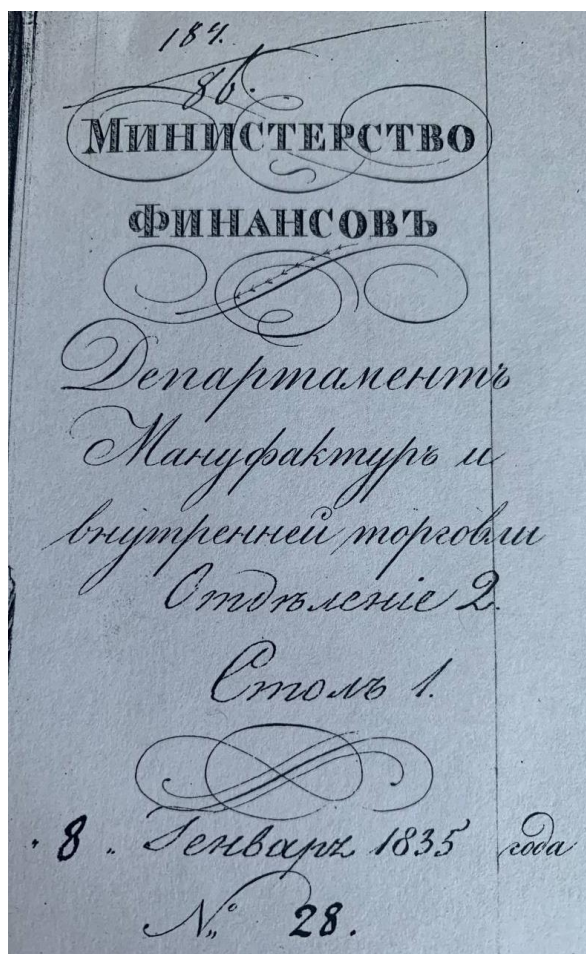 184.
86.
МИНИСТЕРСТВО
ФИНАНСОВЪ
Департаментъ
Мануфактуръ и
внутренней торговли
Отдѣленіе 2.
Столъ 1.
„ 8 „ Генваря 1835 года
№ 28.